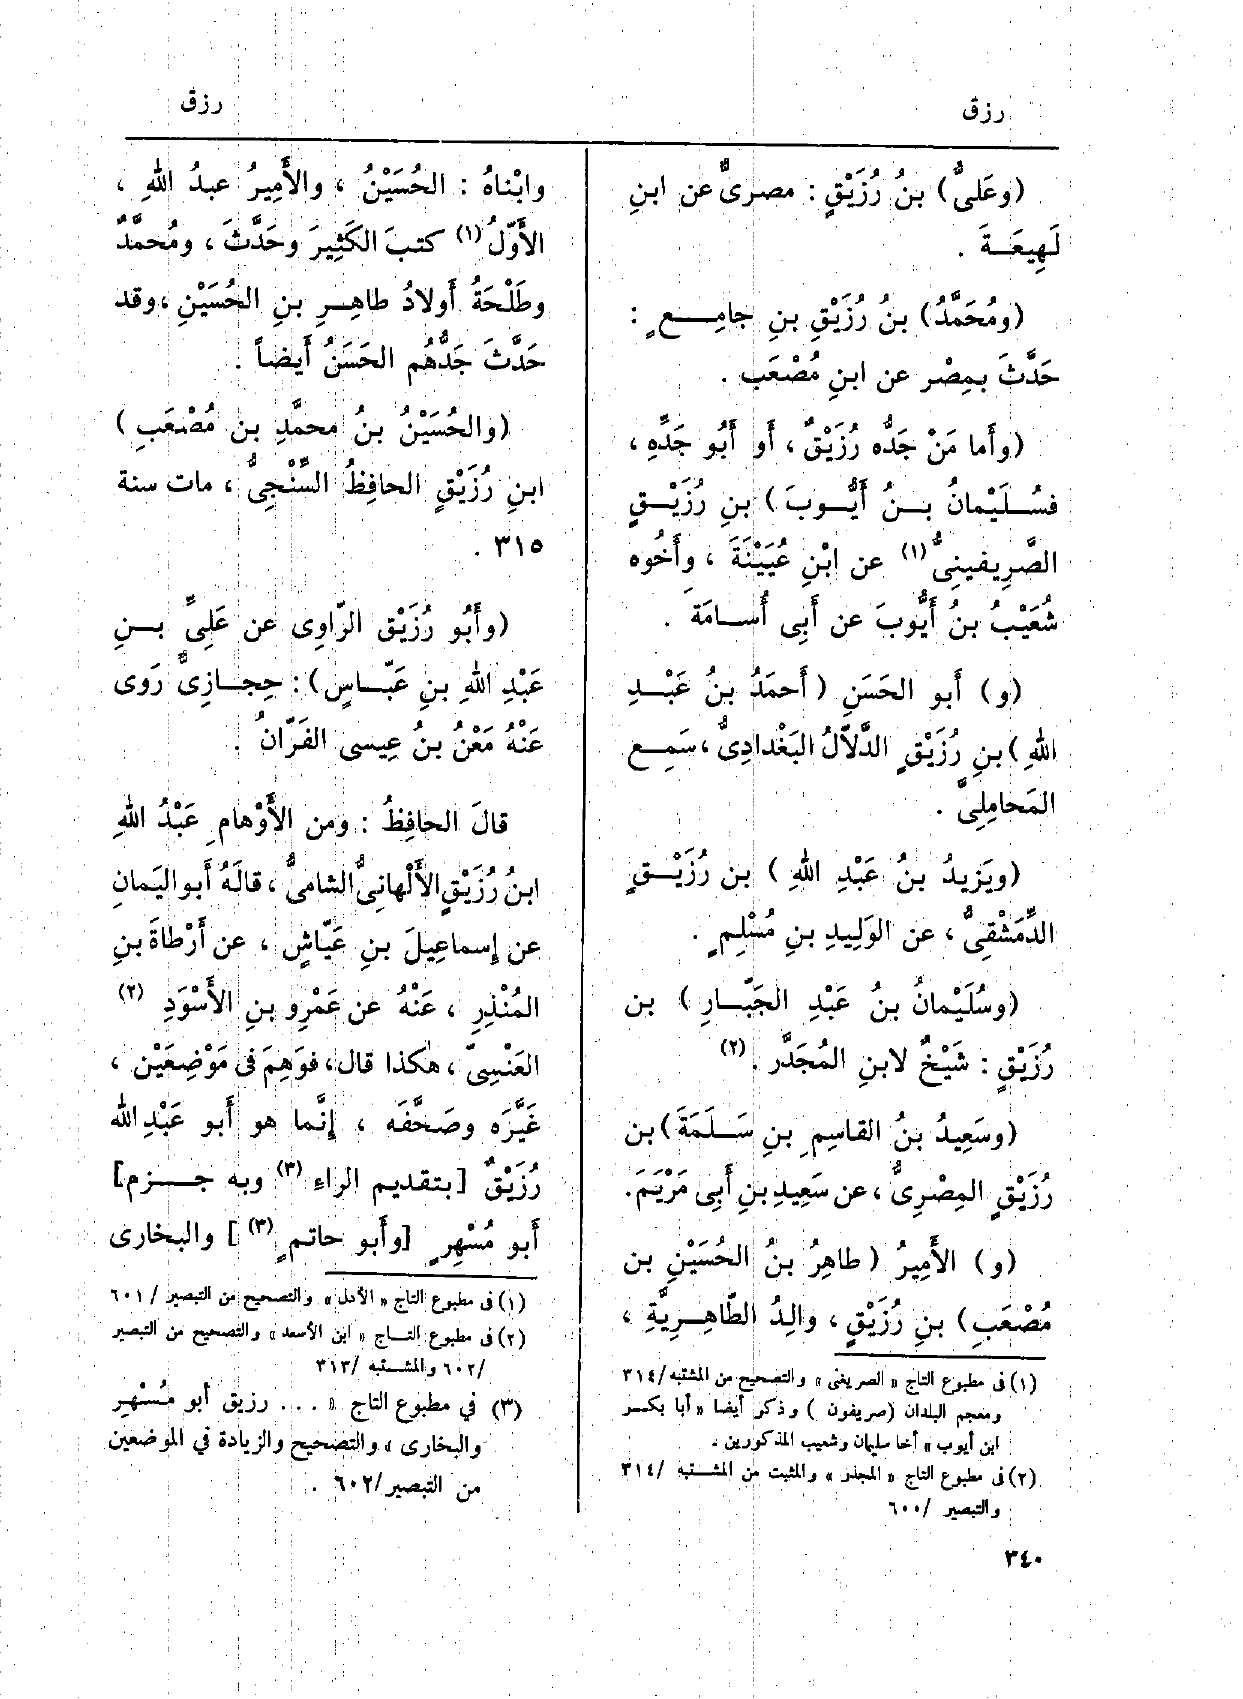 رزق
(وعَلىٌّ) بنُ رُزَيْقٍ : مصرىٌّ عن ابنِ
لَهِيعَـةَ .
(ومُحَمَّدُ) بنُ رُزَيْقِ بنِ جامِــعٍ :
حَدَّثَ بمِصْر عن ابنِ مُصْعَب .
(وأَما مَنْ جَدُّه رُزَيْقٌ ، أَو أَبُو جَدِّهِ ،
فسُـلَيْمانُ بـنُ أَيُّـوبَ ) بنِ رُزَيْـقٍ
الصَّرِيفينِىُّ (١) عن ابْنِ عُيَيْنَةَ ، وأَخُوه
شُعَيْبُ بنُ أَيُّوبَ عن أَبِى أُسـامَةَ .
(و) أَبو الحَسَنِ (أَحمَدُ بنُ عَبْـدِ
اللهِ ) بنِ رُزَيْقٍ الدَّلاّلُ البَغْدادِىُّ ، سَمِـع
المَحامِلِىَّ .
(ويَزيدُ بنُ عَبْدِ اللهِ ) بن رُزَيْـقٍ
الدِّمَشْقِىُّ ، عن الوَلِيدِ بنِ مُسْلِمٍ .
(وسُلَيْمانُ بنُ عَبْدِ الجَبّـارِ ) بن
رُزَيْقٍ : شَيْخٌ لابنِ المُجَدَّر . (٢)
(وسَعِيدُ بنُ القاسِمِ بنِ سَـلَمَةَ ) بن
رُزَيْقٍ المِصْرِىُّ ، عن سَعِيدِ بنِ أَبِى مَرْيَمَ .
(و) الأَمِيرُ (طاهِرُ بنُ الحُسَيْنِ بن
مُصْعَبِ ) بنِ رُزَيْقٍ ، والِدُ الطّاهِـرِيَّةِ ،
(١) فى مطبوع التاج « الصريفى » والتصحيح من المشتبه /٣١٤
ومعجم البلدان (صريفون ) وذكر أيضا « أبا بكـر
ابن أيوب » أخا سليمان وشعيب المذكورين .
(٢) فى مطبوع التاج « المجذر » والمثبت من المشـتبه /٣١٤
والتبصير /٦٠٠
٣٤٠
رزق
وابْناهُ : الحُسَيْنُ ، والأَمِيرُ عبدُ اللهِ ،
الأَوّلُ (١) كتبَ الكَثِيرَ وحَدَّثَ ، ومُحمَّدٌ
وطَلْحَةُ أَولادُ طاهِـرِ بنِ الحُسَيْنِ ، وقد
حَدَّثَ جَدُّهُم الحَسَنُ أَيضاً .
(والحُسَيْنُ بنُ محمَّدِ بن مُصْعَبِ )
ابنِ رُزَيْقٍ الحافِظُ السِّنْجِىُّ ، مات سنة
٣١٥ .
(وأَبُو رُزَيْق الرّاوِى عن عَلِىِّ بـنِ
عَبْدِ اللهِ بنِ عَبّـاسٍ) : حِجـازِىٌّ رَوى
عَنْهُ مَعْنُ بنُ عِيسى القَزّازُ .
قالَ الحافِظُ : ومن الأَوْهامِ عَبْدُ اللهِ
ابنُ رُزَيْقٍ الأَلْهانِىُّ الشامىُّ ، قالَهُ أَبو اليَمانِ
عن إِسماعِيلَ بنِ عَيّاشٍ ، عن أَرْطاةَ بنِ
المُنْذِرِ ، عَنْهُ عن عَمْرِو بنِ الأَسْوَدِ (٢)
العَنْسِىّ ، هٰكذا قال ، فوَهِمَ فى مَوْضِعَيْن ،
غَيَّرَه وصَحَّفَه ، إِنَّما هو أَبو عَبْدِ الله
رُزَيْقٌ [بتقديم الراءِ (٣) وبه جـــزم]
أَبو مُسْهِرٍ [وأَبو حاتمٍ (٣) ] والبخارى
(١) فى مطبوع التاج « الأمل » والتصحيح من التبصير /٦٠١
(٢) فى مطبوع التـاج « ابن الأسعد » والتصحيح من التبصير
/٦٠٢ والمشـتبه /٣١٣
(٣) في مطبوع التاج « ... رزيق أبو مُسْهِر
والبخارى » والتصحيح والزيادة في الموضعين
من التبصير /٦٠٢ .